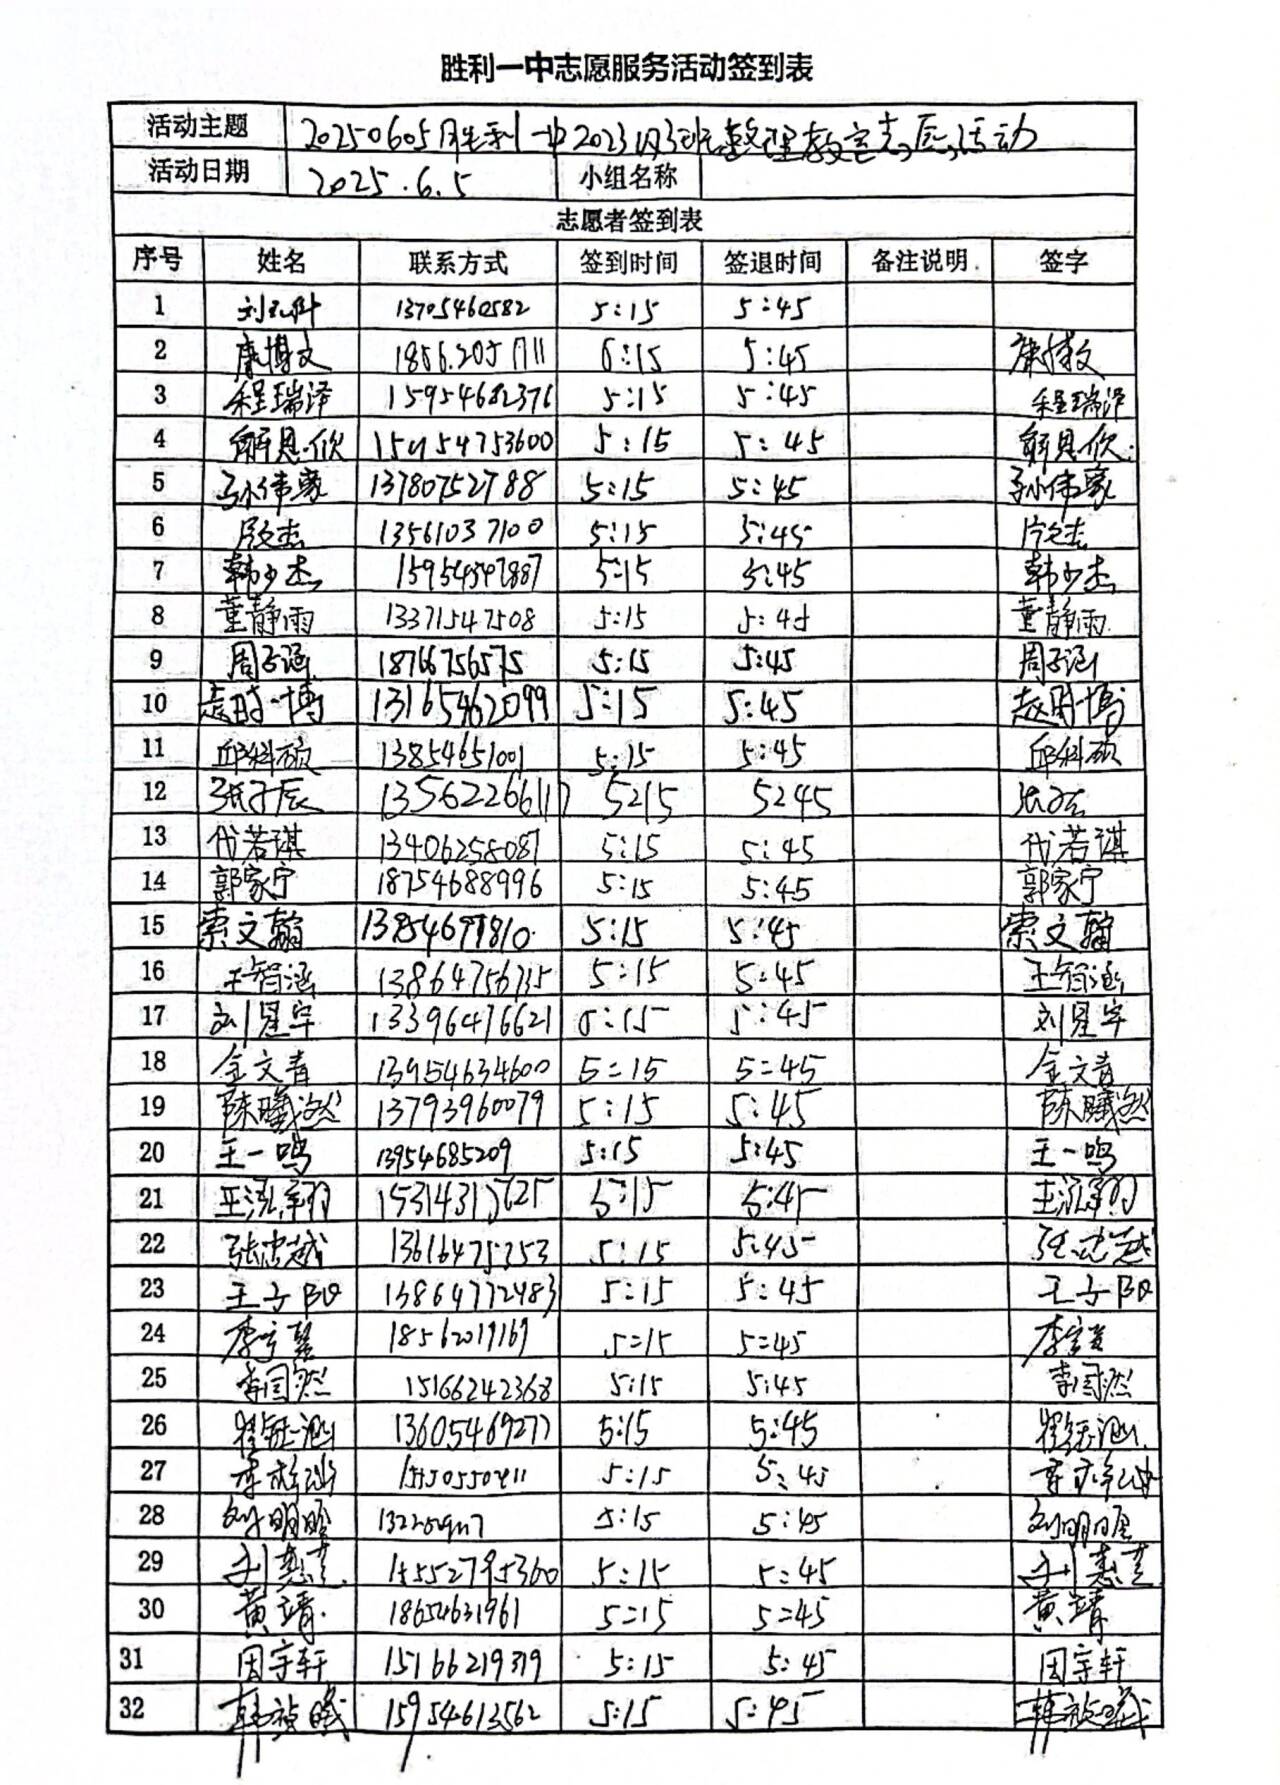 胜利一中志愿服务活动签到表
活动主题 20250605胜利一中2023级3班整理教室志愿活动
活动日期 2025.6.5 小组名称
志愿者签到表
序号 姓名 联系方式 签到时间 签退时间 备注说明 签字
1 13705460582 5:15 5:45
2 康博文 5:15 5:45 康博文
3 程瑞泽 15954682376 5:15 5:45 程瑞泽
4 解思欣 15:15 5:45 解思欣
5 孙伟豪 13780752788 5:15 5:45 孙伟豪
6 13561037100 5:15 5:45
7 韩少杰 5:15 5:45 韩少杰
8 董静雨 13371547508 5:15 5:45 董静雨
9 周子涵 18766756575 5:15 5:45 周子涵
10 袁时博 13165462099 5:15 5:45 袁时博
11 邱科硕 13854651001 5:15 5:45 邱科硕
12 张子辰 13562266117 5:15 5:45
13 代若琪 13406258087 5:15 5:45 代若琪
14 郭家宁 18754688996 5:15 5:45 郭家宁
15 索文翰 5:15 5:45 索文翰
16 王智涵 13864756735 5:15 5:45 王智涵
17 刘星宇 13396476621 5:15 5:45 刘星宇
18 金文青 13954634600 5:15 5:45 金文青
19 陈曦然 13793960079 5:15 5:45 陈曦然
20 王一鸣 13954685209 5:15 5:45 王一鸣
21 王泓翔 5:15 5:45 王泓翔
22 张忠越 5:15 5:45 张忠越
23 王子阳 13864772483 5:15 5:45 王子阳
24 18562019169 5:15 5:45
25 李闰然 15166242368 5:15 5:45 李闰然
26 崔钰涵 13605469277 5:15 5:45 崔钰涵
27 5:15 5:45
28 5:15 5:45
29 15552795360 5:15 5:45
30 黄靖 18654631961 5:15 5:45 黄靖
31 田宇轩 15166219319 5:15 5:45 田宇轩
32 韩祯曦 15954613562 5:15 5:45 韩祯曦